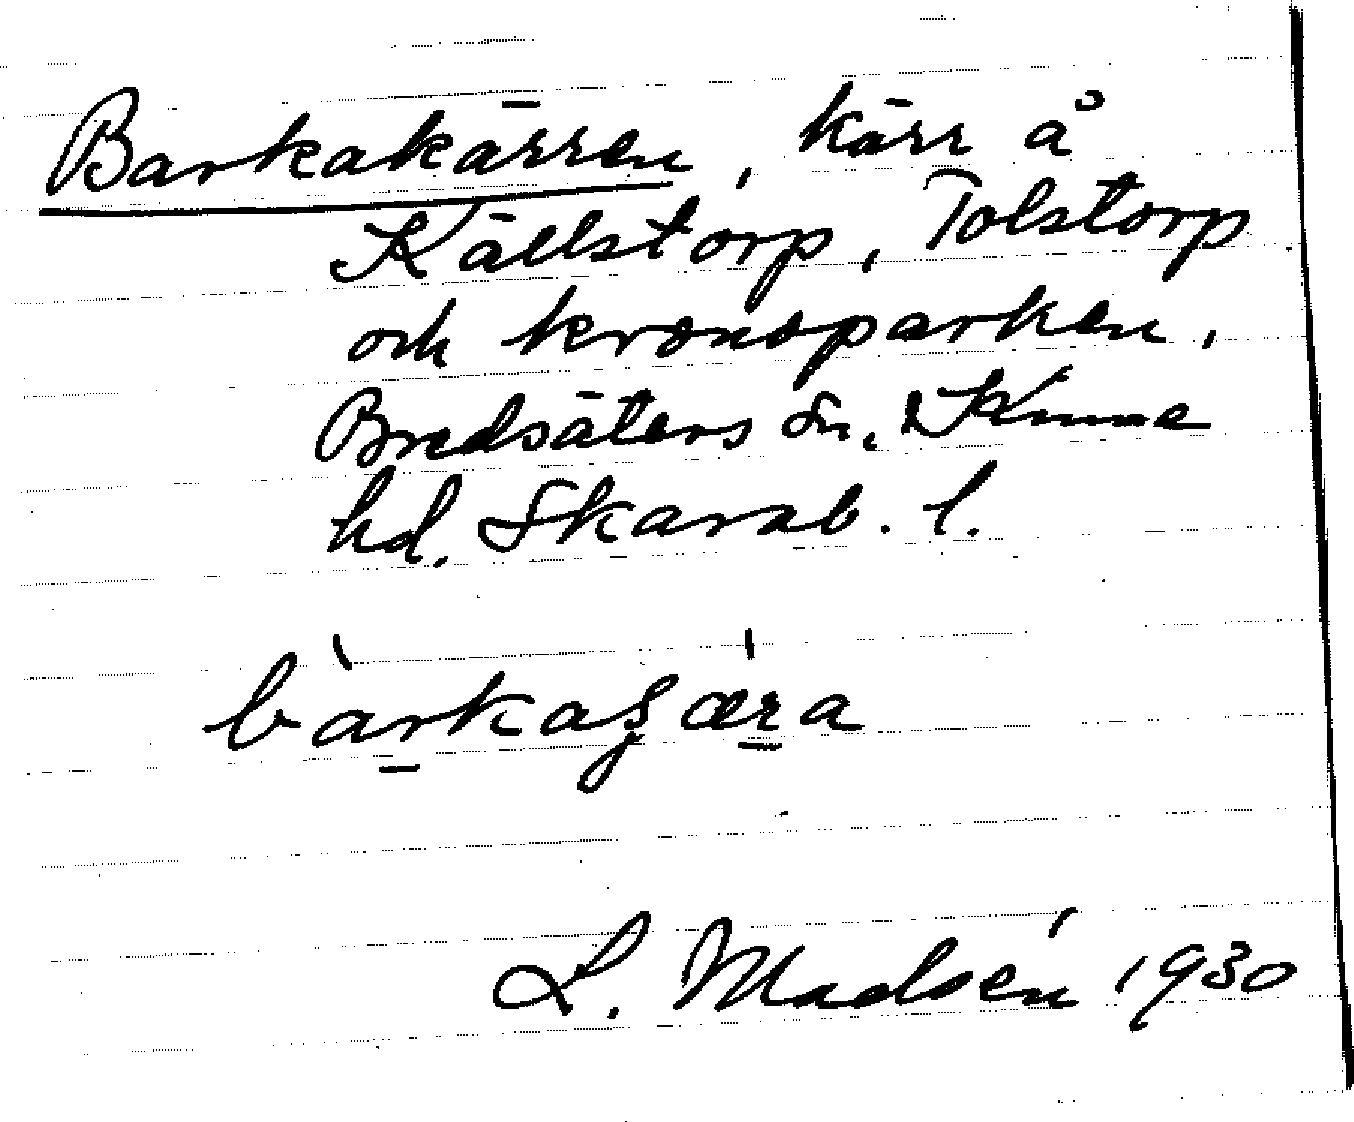 Barkakärren, kärr å
Källstorp, Tolstorp
och kronoparken,
Bredsäters sn, Kinne
hd. Skarab. l.
bàrkaʒæ̀ra
L. Madsén 1930